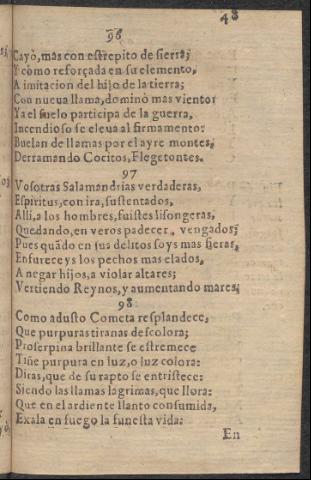 48
96
Cayò, mas con estrepito de sierra;
Y como reforçada en su elemento,
A imitacion del hijo de la tierra;
Con nueua llama, dominò mas viento:
Ya el suelo participa de la guerra,
Incendioso se eleua al firmamento:
Buelan de llamas por el ayre montes,
Derramando Cocitos, Flegetontes.
97
Vosotras Salamandrias verdaderas,
Espiritus, con ira, sustentados,
Alli, a los hombres, fuistes lisongeras,
Quedando, en veros padecer, vengados;
Pues quãdo en sus delitos soys mas fieras,
Ensureceys los pechos mas elados,
A negar hijos, a violar altares;
Vertiendo Reynos, y aumentando mares;
98
Como adusto Cometa resplandece,
Que purpuras tiranas descolora;
Proserpina brillante se estremece
Tiñe purpura en luz, o luz colora:
Diras, que de su rapto se entristece:
Siendo las llamas lagrimas, que llora:
Que en el ardiente llanto consumida,
Exala en fuego la funesta vida:
En